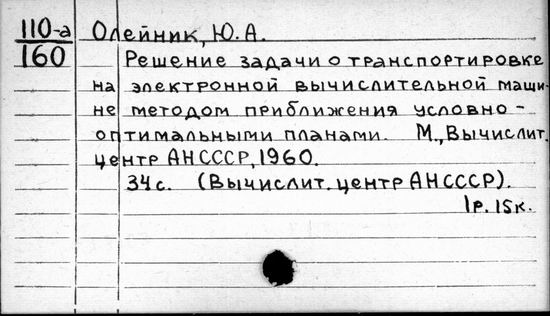 110-а Олейник, Ю.А.
160 Решение задачи о транспортировке
на электронной вычислительной маши-
не методом приближения условно-
оптимальными планами. М., Вычислит.
центр АН СССР, 1960.
34 с. (Вычислит. центр АН СССР).
1р. 15к.